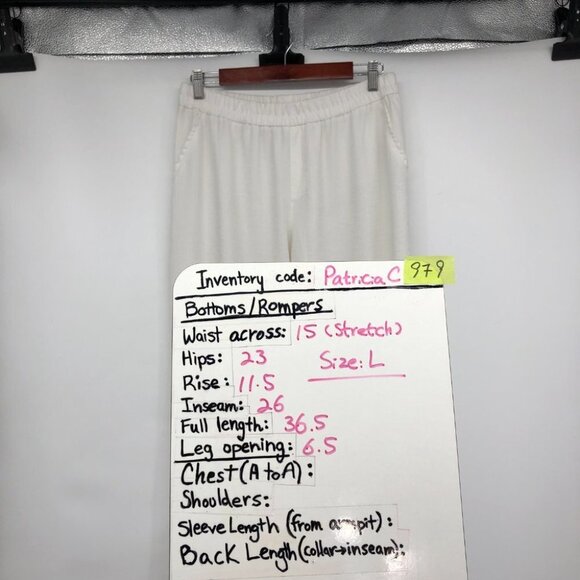 Inventory code: Patricia C 979
Bottoms/Rompers
Waist across: 15 (Stretch)
Hips: 23 Size: L
Rise: 11.5
Inseam: 26
Full length: 36.5
Leg opening: 6.5
Chest (A to A):
Shoulders:
Sleeve Length (from armpit):
Back Length (collar→inseam):